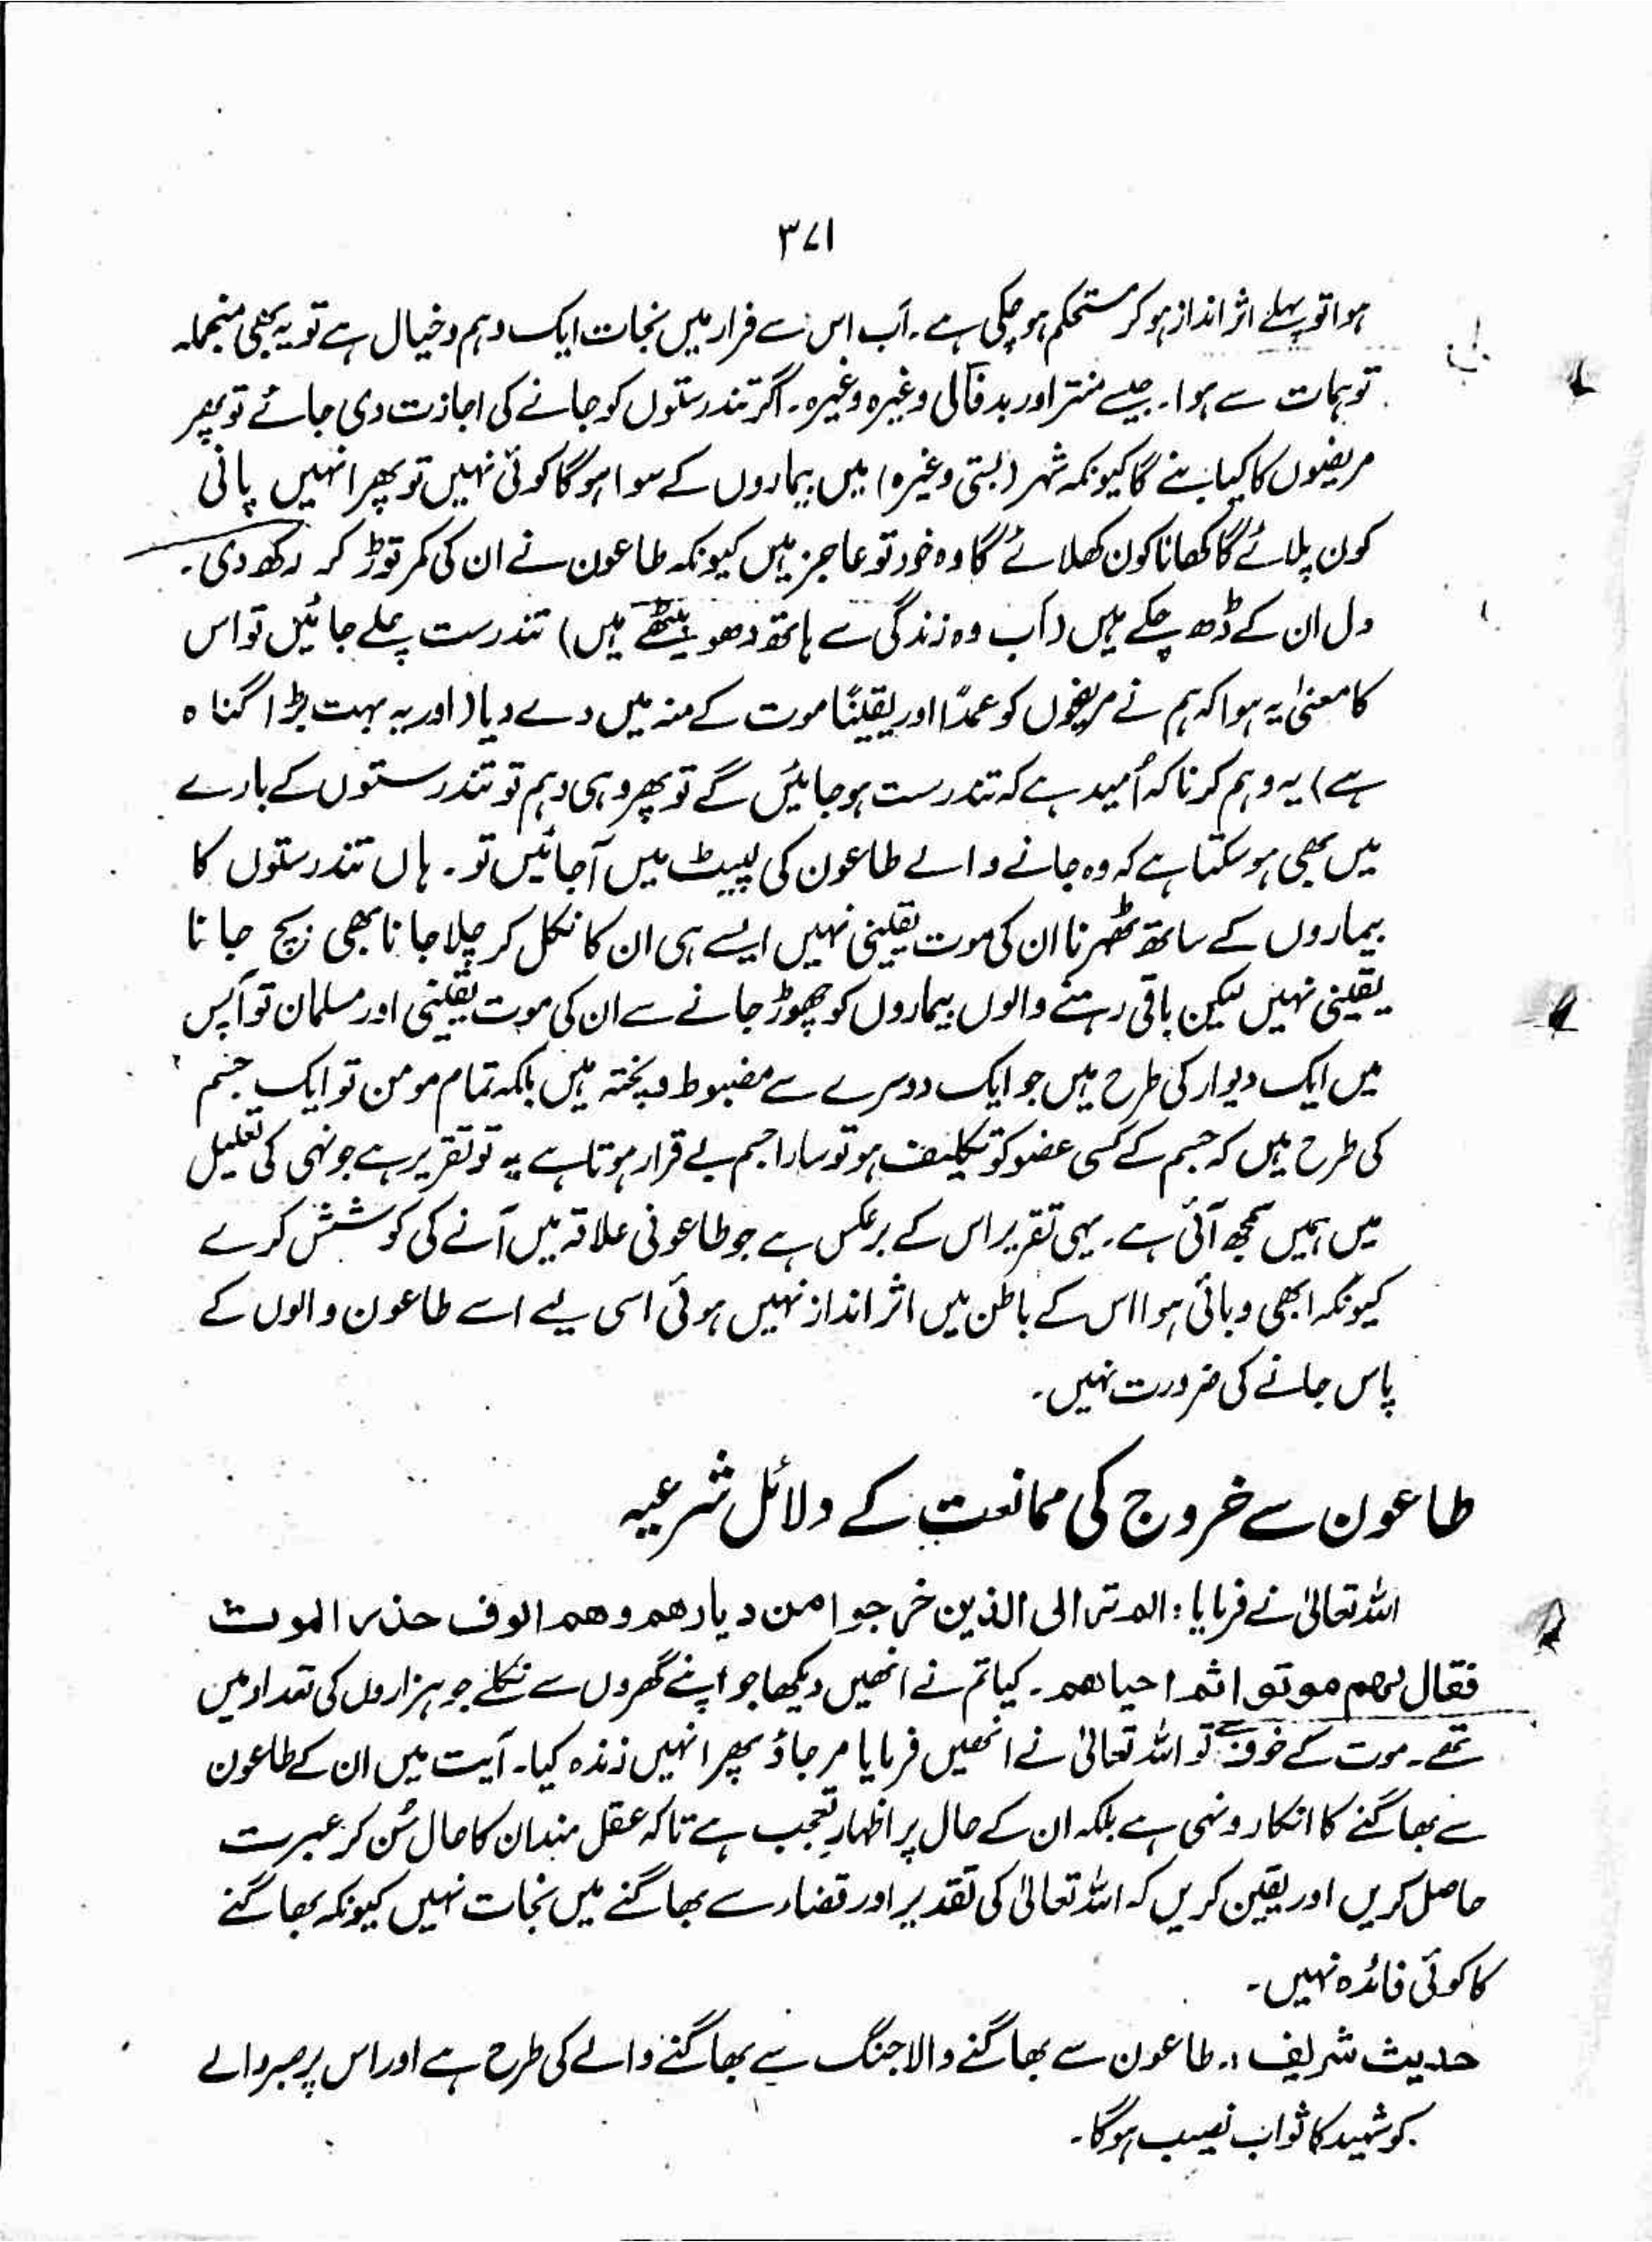 ۳۷۱
ہوا تو پہلے اثر انداز ہو کر مستحکم ہو چکی ہے ۔ اَب اس سے فرار میں نجات ایک وہم و خیال ہے تو یہ بھی منجملہ
توہمات سے ہوا ۔ جیسے منتر اور بدفالی وغیرہ وغیرہ ۔ اگر تندرستوں کو جانے کی اجازت دی جائے تو پھر
مریضوں کا کیا بنے گا کیونکہ شہر (بستی وغیرہ) میں بیماروں کے سوا ہو گا کوئی نہیں تو پھر انہیں پانی
کون پلائے گا کھانا کون کھلائے گا وہ خود تو عاجز ہیں کیونکہ طاعون نے ان کی کمر توڑ کر رکھ دی ۔
دل ان کے ڈھ چکے ہیں (اَب وہ زندگی سے ہاتھ دھو بیٹھے ہیں) تندرست چلے جائیں تو اس
کا معنیٰ یہ ہوا کہ ہم نے مریضوں کو عمدًا اور یقینًا موت کے منہ میں دے دیا (اور یہ بہت بڑا گناہ
ہے) یہ وہم کرنا کہ اُمید ہے کہ تندرست ہو جائیں گے تو پھر وہی وہم تو تندرستوں کے بارے
میں بھی ہو سکتا ہے کہ وہ جانے والے طاعون کی لپیٹ میں آ جائیں تو ۔ ہاں تندرستوں کا
بیماروں کے ساتھ ٹھہرنا ان کی موت یقینی نہیں ایسے ہی ان کا نکل کر چلا جانا بھی بچ جانا
یقینی نہیں لیکن باقی رہنے والوں بیماروں کو چھوڑ جانے سے ان کی موت یقینی اور مسلمان تو آپس
میں ایک دیوار کی طرح ہیں جو ایک دوسرے سے مضبوط و پختہ ہیں بلکہ تمام مومن تو ایک جسم
کی طرح ہیں کہ جسم کے کسی عضو کو تکلیف ہو تو سارا جسم بے قرار ہوتا ہے یہ تو تقریر ہے جو نہی کی تعلیل
میں ہمیں سمجھ آئی ہے ۔ یہی تقریر اس کے برعکس ہے جو طاعونی علاقہ میں آنے کی کوشش کرے
کیونکہ ابھی وبائی ہوا اس کے باطن میں اثر انداز نہیں ہوئی اسی لیے اسے طاعون والوں کے
پاس جانے کی ضرورت نہیں ۔
طاعون سے خروج کی ممانعت کے دلائل شرعیہ
اللہ تعالیٰ نے فرمایا : الم تر الی الذین خرجوا من دیارھم وھم الوف حذر الموت
فقال لہم موتوا ثم احیاھم ۔ کیا تم نے انھیں دیکھا جو اپنے گھروں سے نکلے جو ہزاروں کی تعداد میں
تھے ۔ موت کے خوف سے تو اللہ تعالیٰ نے انھیں فرمایا مر جاؤ پھر انہیں زندہ کیا ۔ آیت میں ان کے طاعون
سے بھاگنے کا انکار و نہی ہے بلکہ ان کے حال پر اظہارِ تعجب ہے تاکہ عقل مند ان کا حال سُن کر عبرت
حاصل کریں اور یقین کریں کہ اللہ تعالیٰ کی تقدیر اور قضاء سے بھاگنے میں نجات نہیں کیونکہ بھاگنے
کا کوئی فائدہ نہیں ۔
حدیث شریف :۔ طاعون سے بھاگنے والا جنگ سے بھاگنے والے کی طرح ہے اور اس پر صبر والے
کو شہید کا ثواب نصیب ہو گا ۔